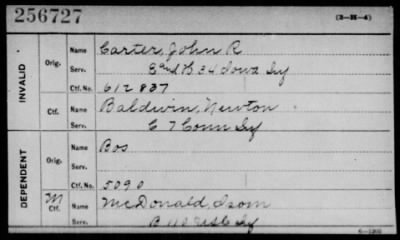 256727
(3-H-4)
INVALID
Orig.
Name Carter, John R
Serv. C and B 34 Iowa Inf
Ctf. No. 612837
Ctf.
Name Baldwin, Newton
Serv. C 7 Conn Inf
DEPENDENT
Orig.
Name Bos
Serv.
Ctf. No. 5090
M
Ctf.
Name McDonald, Isom
Serv. B 110